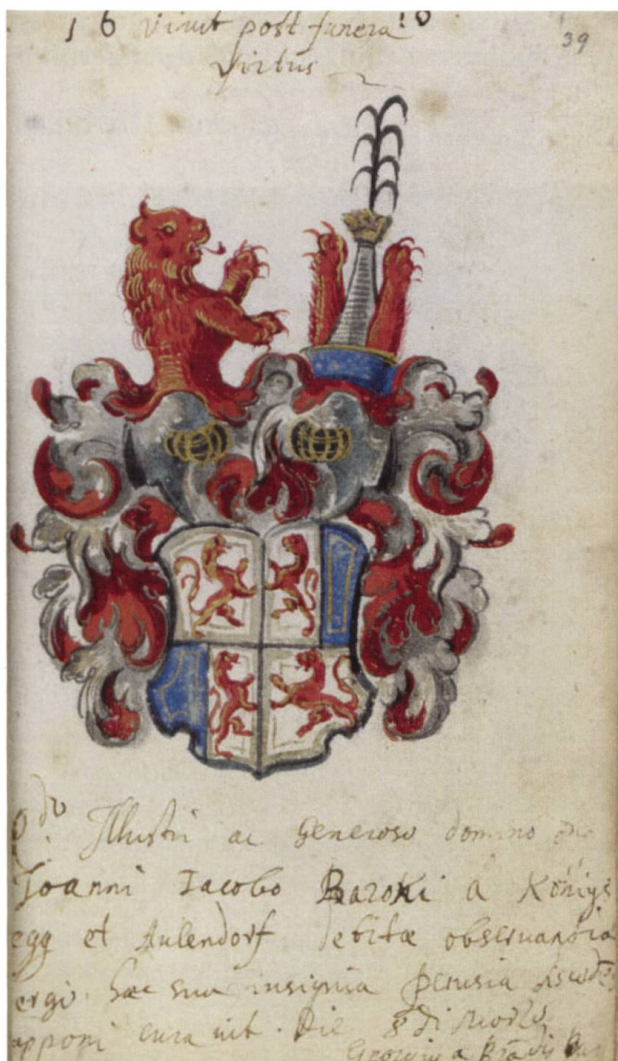 16 Vivit post funera 10
39
Virtus
Illustri ac Generoso domino
Joanni Jacobo Baroni à Königs
egg et Aulendorf debitæ observantia
ergo. Hæc sua insignia Perusia
apponi curavit. Die 8 di
Georgius a